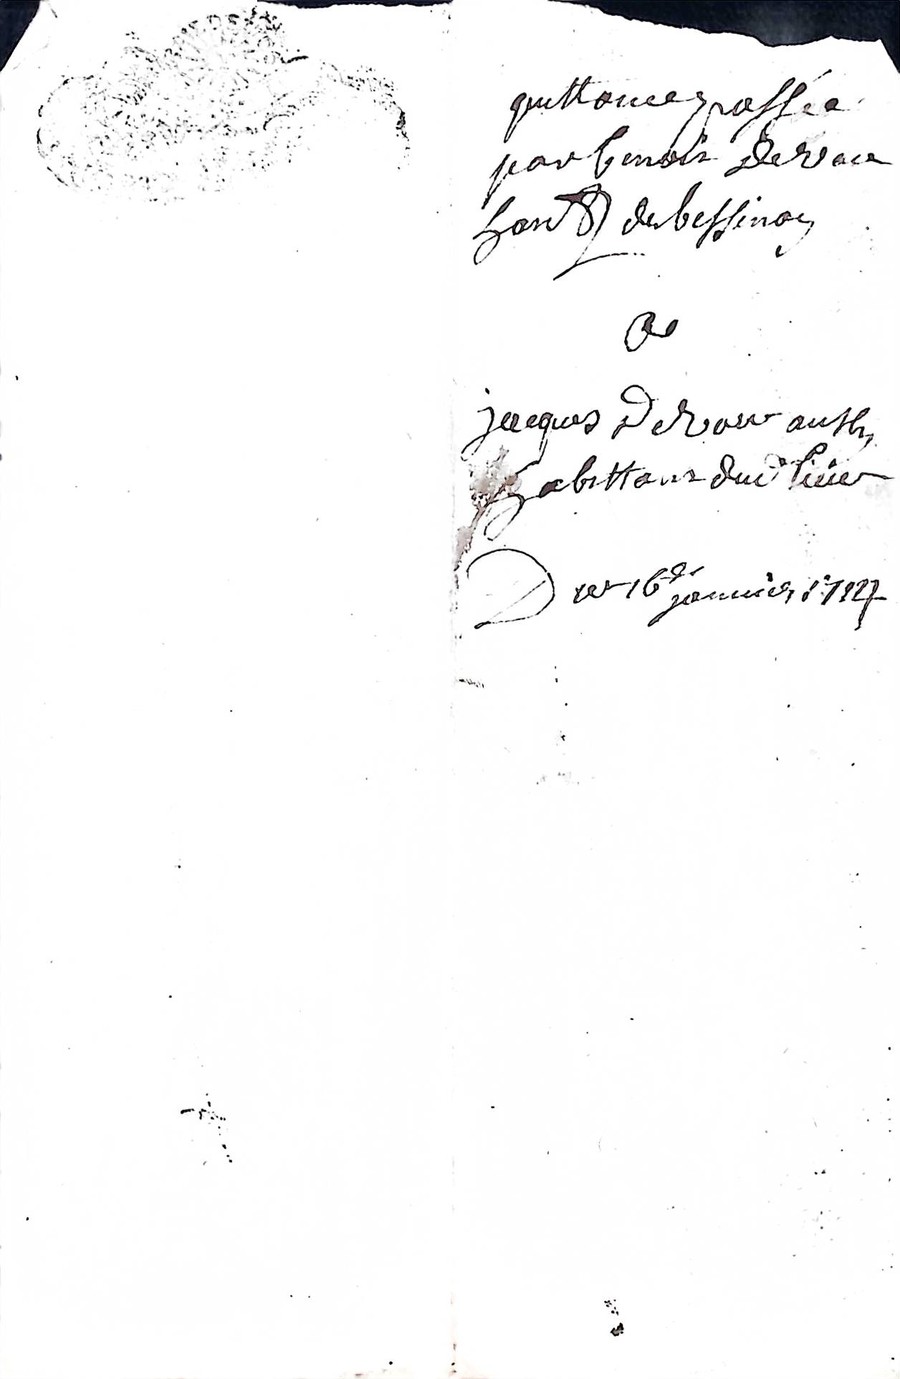 quittance passée
par benoit Deroux
hant de bessinay
A
jacques Deroux aussy
habittant dud lieu
Du 16e janvier 1727